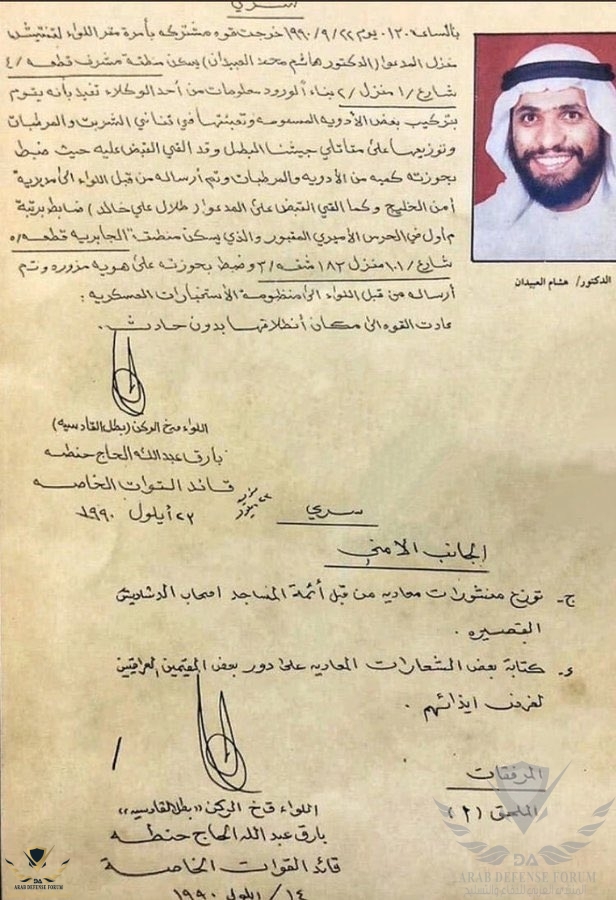 سري
بالساعه ١٢٠٠ يوم ١٩٩٠/٩/٢٢ خرجت قوه مشتركه بأمرة مقر اللواء لتفتيش
منزل المدعوا ( الدكتور هاشم محمد العبيدان ) يسكن منطقة مشرف قطعه /٤
شارع /١ منزل /٢ بناء ألورود معلومات من أحد الوكلاء تفيد بأنه يقوم
بتركيب بعض الأدويه المسمومه وتعبئتها في قناني الشربت والمرطبات
وتوزيعها على مقاتلي جيشنا البطل وقد القي القبض عليه حيث ضبط
بحوزته كميه من الأدويه والمرطبات وتم أرساله من قبل اللواء الى مديرية
أمن الخليج وكما القي القبض على المدعوا ( طلال علي خالد ) ضابط برتبة
م أول في الحرس الأميري المقبور والذي يسكن منطقة الجابريه قطعه /٥
شارع /١٠١ منزل ١٨٢ شقه /٣ وضبط بحوزته على هويه مزوره وتم
أرساله من قبل اللواء الى منظومة الأستخبارات العسكريه :
عادت القوه الى مكان أنطلاقها بدون حادث .
الدكتور/ هشام العبيدان
اللواء ق خ الركن (بطل القادسيه)
بارق عبدالله الحاج حنطه
قائد القوات الخاصه
٢٣ أيلول ١٩٩٠
سري
الجانب الامني
ج- توزيع منشورات معاديه من قبل أئمة المساجد اصحاب الدشاديش
القصيره .
د- كتابة بعض الشعارات المعاديه على دور بعض المقيمين العراقيين
لغرض ايذائهم .
المرفقات
الملحق (٢)
اللواء ق خ الركن «بطل القادسيه»
بارق عبد الله الحاج حنطه
قائد القوات الخاصة
١٤ / ايلول ١٩٩٠
DA
ARAB DEFENSE FORUM
DA
ARAB DEFENSE FORUM